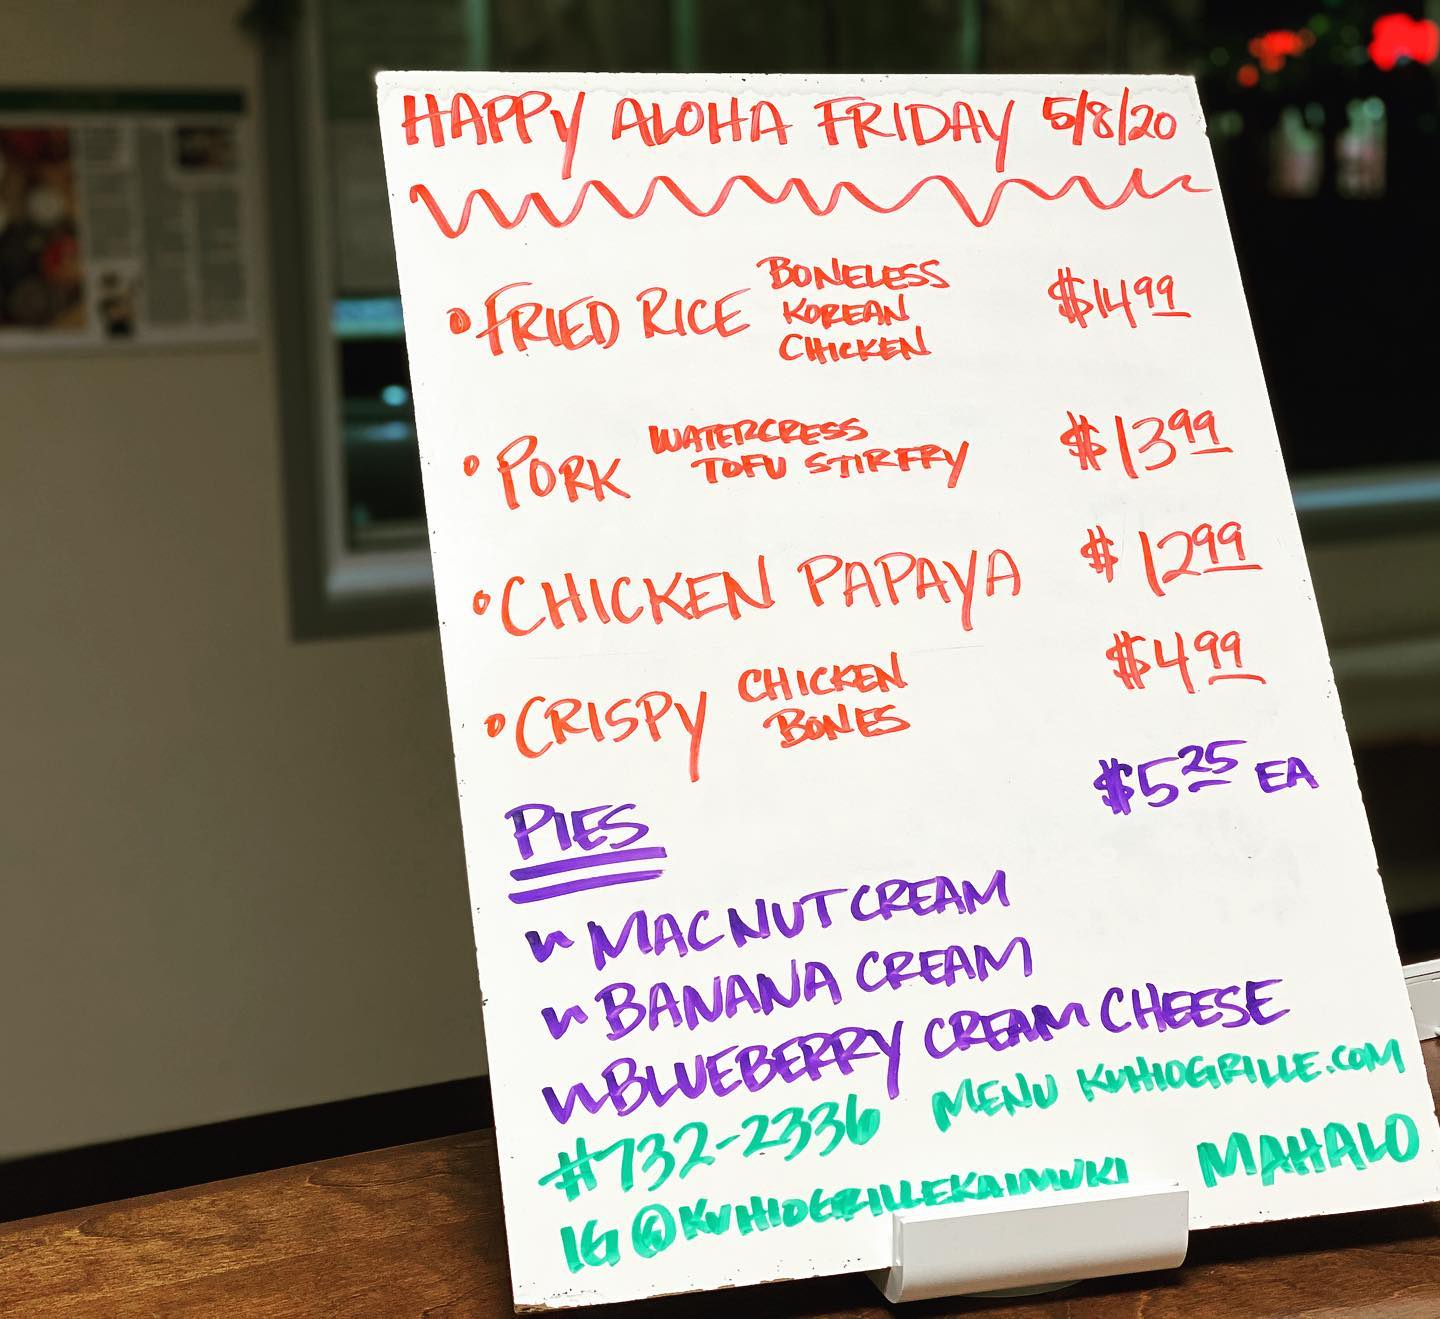 HAPPY ALOHA FRIDAY 5/8/20
FRIED RICE BONELESS KOREAN CHICKEN $14.99
PORK WATERCRESS TOFU STIRFRY $13.99
CHICKEN PAPAYA $12.99
CRISPY CHICKEN BONES $4.99
PIES $5.25 EA
MAC NUT CREAM
BANANA CREAM
BLUEBERRY CREAM CHEESE
#732-2336 MENU KUHIOGRILLE.COM
IG @KUHIOGRILLEKAIMUKI MAHALO